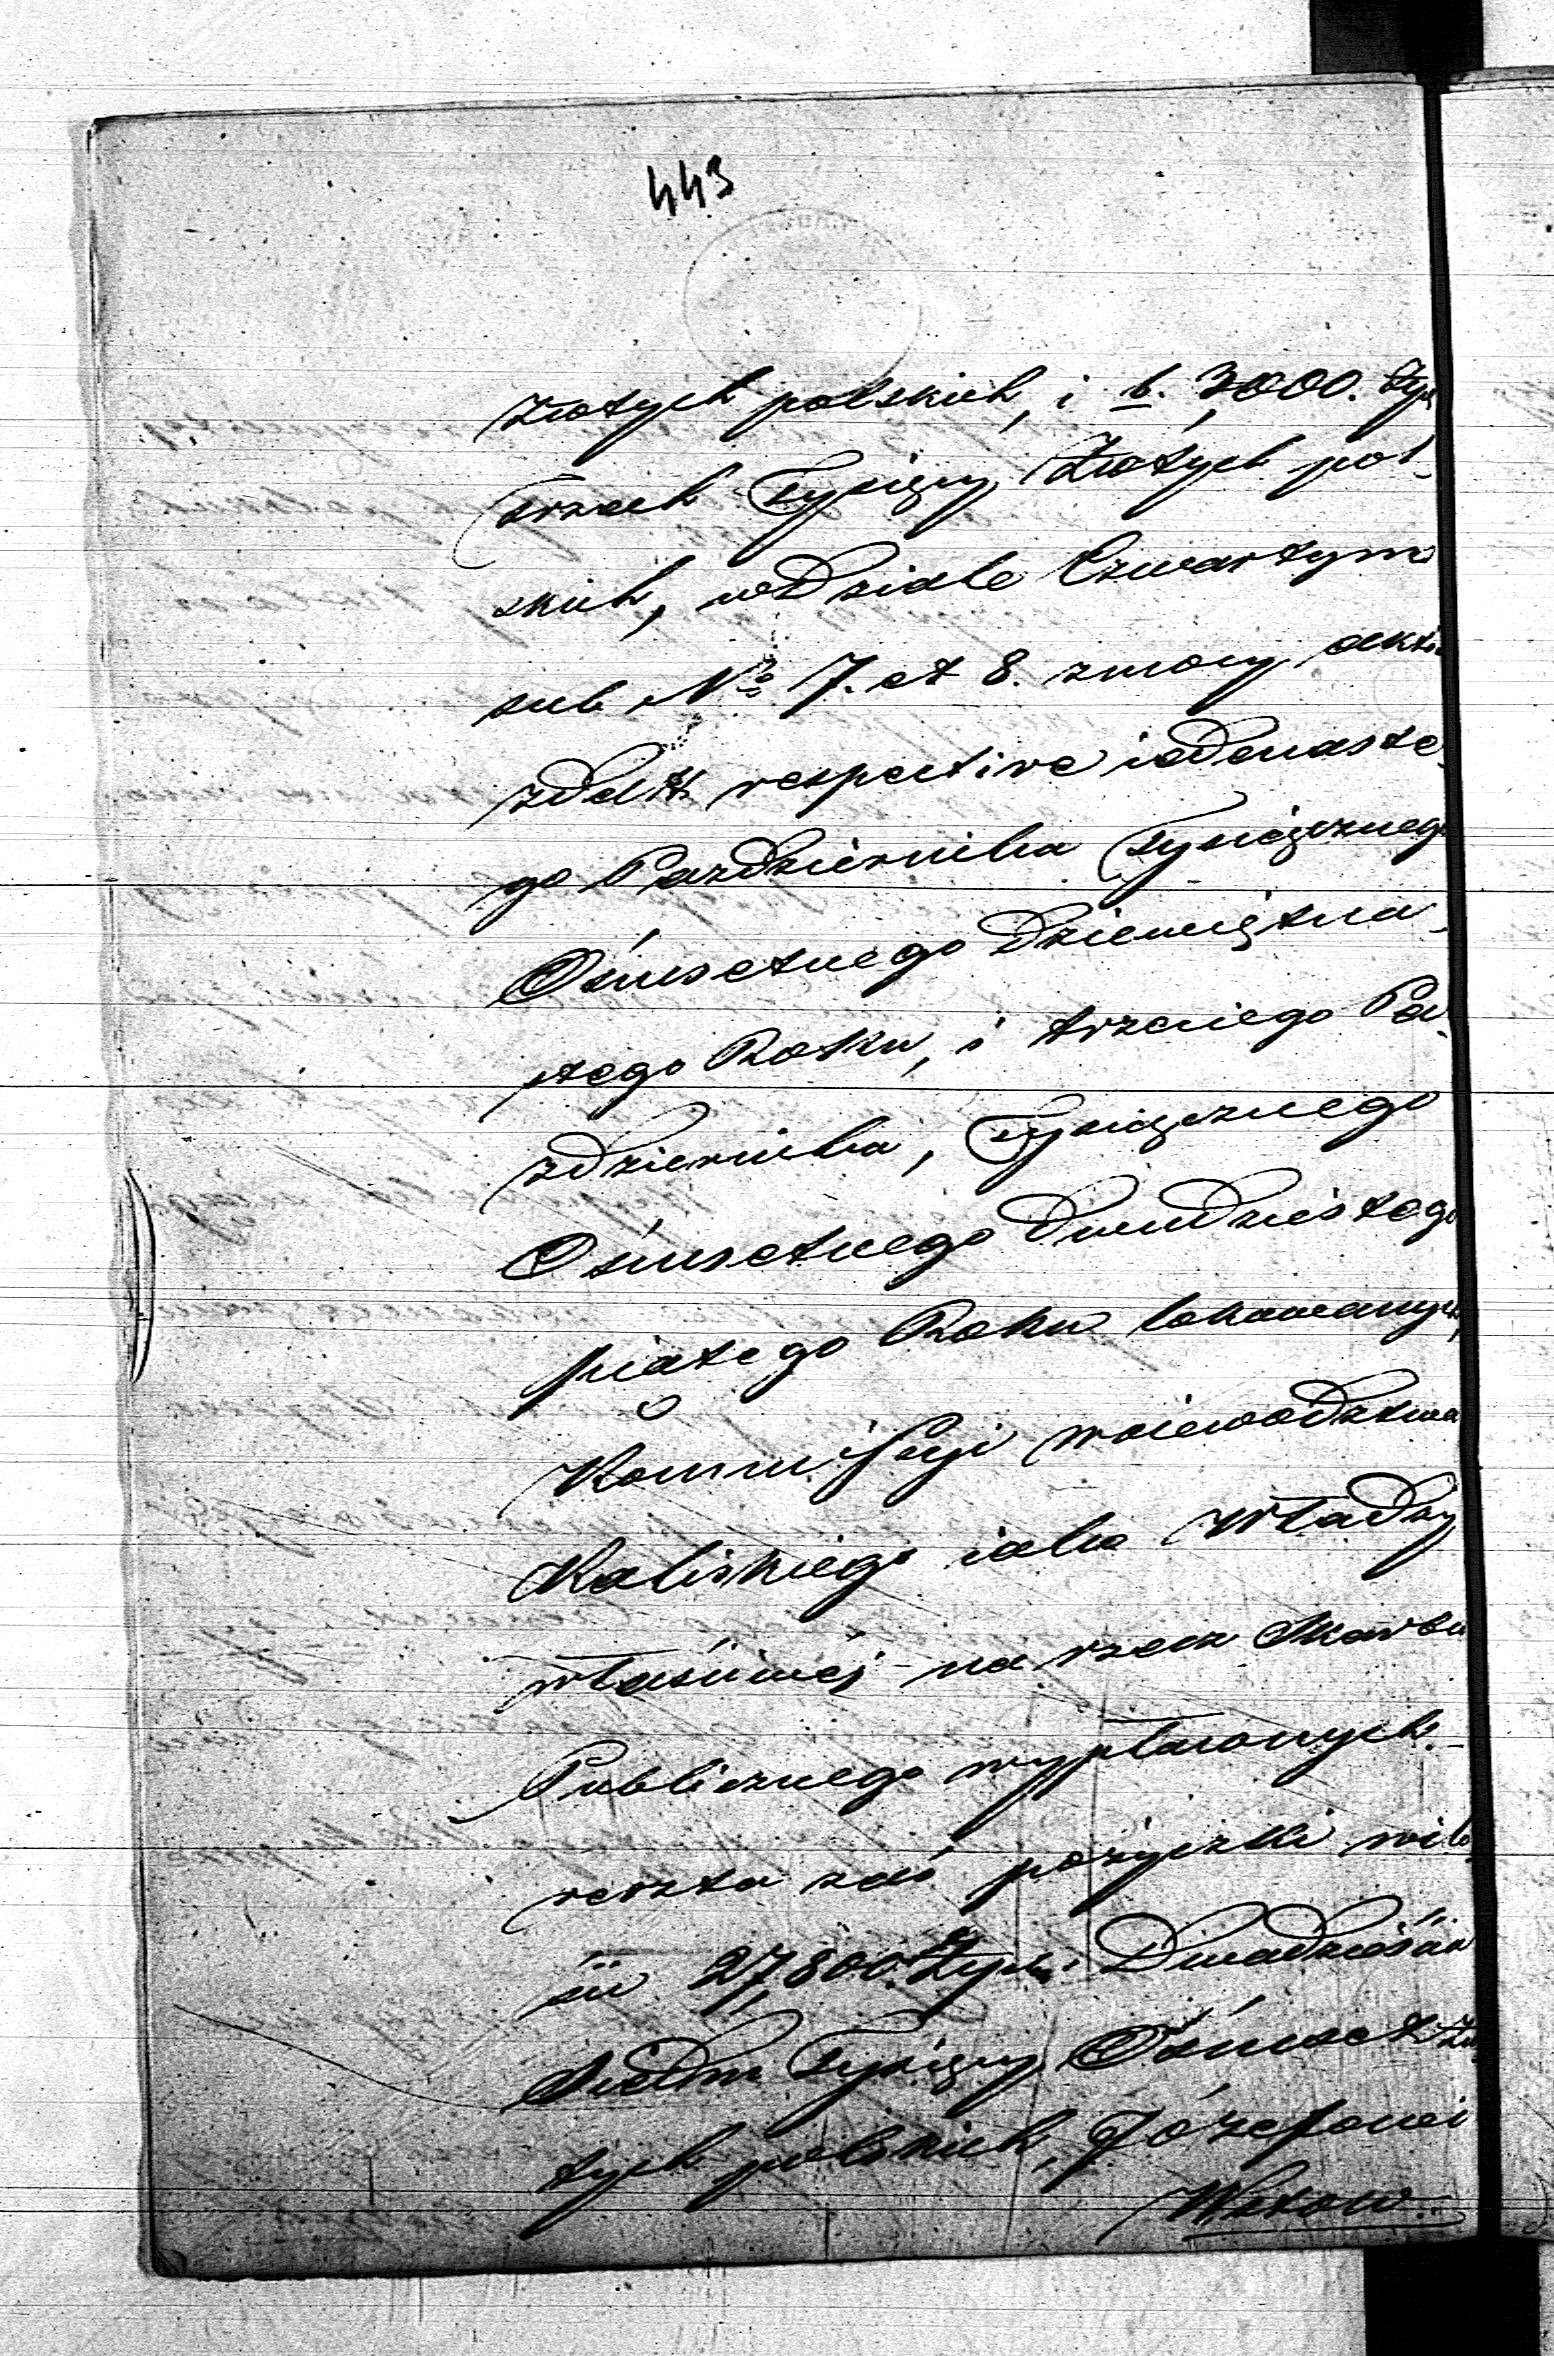 443
złotych polskich, i b. 3000. Złp
trzech Tysięcy Złotych pol-
skich, w Dziale Czwartym
sub No 7. et 8. z mocy aktu
zdett respective iedenaste-
go Pazdziernika Tysiącznego
Ośmsetnego Dziewiętna-
stego Roku, i trzeciego Pa-
zdziernika, Tysiącznego
Ośmsetnego Dwudziestego
piątego Roku lokowanych,
Kommissyi Woiewodztwa
Kaliskiego iako Władzy
właściwéj na rzecz Skarbu
Publicznego wypłaconych.-
reszta zaś pożyczki w ilo-
ści 27,800. Złych: Dwadzieścia
Siedm Tysięcy Ośmset Zło-
tych polskich, Józefowi